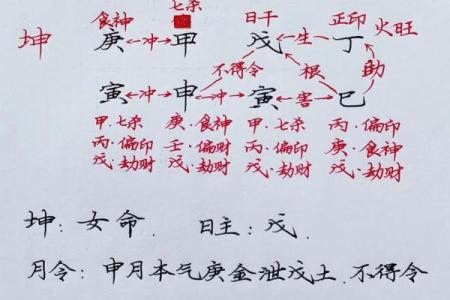 食神 七杀 日干 正印
坤 庚 ←冲→ 甲 戊 ←生 丁 火旺
不得令 根 助
寅 ←冲→ 申 ←冲→ 寅 ←害→ 巳
甲·七杀 庚·食神 甲·七杀 丙·偏印
丙·偏印 壬·偏财 丙·偏印 庚·食神
戊·劫财 戊·劫财 戊·劫财 戊·劫财
坤：女命. 日主：戊.
月令：申月本气庚金泄戊土.不得令